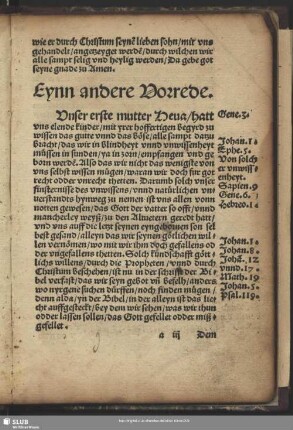 wie er durch Christum seynē lieben sohn / mir vns
gehandelt / angezeyget werdē / durch wilchen wir
alle sampt selig vnd heylig werden / Da gebe got
seyne gnade zu Amen.
Eynn andere Vorrede.
Vnser erste mutter Heua / hatt
vns elende kinder / mit yrer hoffertigen begyrd zu
wissen das gutte vnnd das böse / alle sampt dartzu
bracht / das wir in blindheyt vnnd vnwissenheyt
müssen in sunden / ya in zorn / empfangen vnd ge
born werdē. Also das wir nicht das wenigiste von
vns selbst wissen mügen / waren wir doch fur got
recht odder vnrecht thetten. Darumb solch vnser
finsternisß des vnwissens / vnnd natürlichen vns
verstandts hynweg zu nemen ist vns allen vonn
nötten gewesen / das Gott der vater so offt / vnnd
mancherley weyß / zu den Altuetern geredt hatt /
vnd vns auff die letz seynen eyngebornen son sel
best gesand / alleyn das wir seynen götlichen wil
len vernömen / wo mit wir ihm doch gefallens od
der vngefallens thetten. Solch kundschafft göt
lichs willens / durch die Propheten / vnnd durch
Christum Beschehen / ist nu in der schrifft der Bi
bel verfast / das wir seyn gebot vñ befelh / anders
wo nyrgent suchen dürffen / noch finden mügen /
denn alda / yn der Bibel / in der alleyn ist das lie
cht auffgesteckt / bey dem wir sehen / was wir thun
odder lassen sollen / das Gott gefellet odder miß
gefellet.
a iij Dem
Gene. 3.
Johan. 1.
Ephe. 5.
Von solch
er vnwiss
entheyt.
Sapien. 9
Gene. 6.
Hebreo. 1.
Johan. 1.
Johan. 8.
Johā. 12.
vnnd. 17.
Math. 19
Johan. 5.
Psal. 119.
SLUB